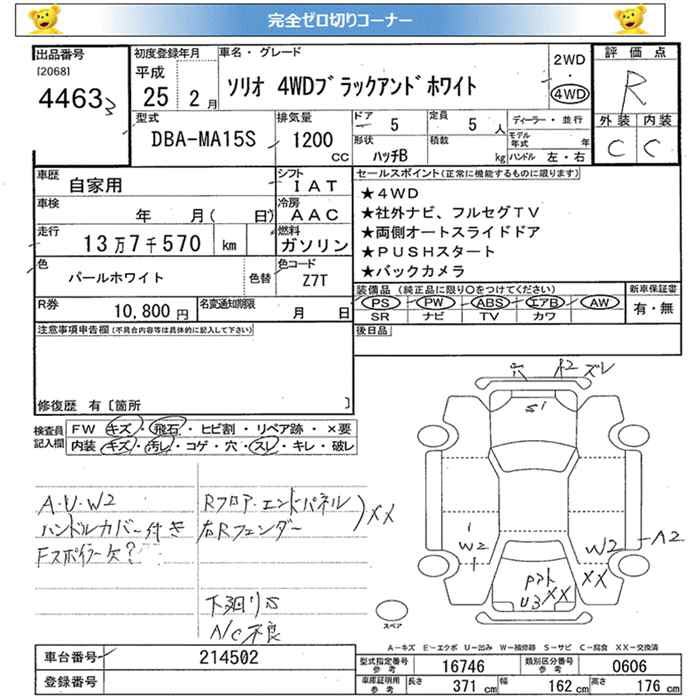 完全ゼロ切りコーナー
出品番号
[2068]
4463
初度登録年月
平成
25 2 月
車名・グレード
ソリオ 4WDブラックアンドホワイト
2WD
・
4WD
評価点
R
外装 内装
C C
型式
DBA-MA15S
排気量
1200
CC
ドア
5
定員
5 人
形状
ハッチB
積載
kg
ディーラー・並行
モデル年式 年
ハンドル 左・右
車歴
自家用
シフト
IAT
車検
年 月( 日)
冷房
AAC
走行
13万7千570 km
燃料
ガソリン
色
パールホワイト
色替
色コード
Z7T
R券
10,800 円
名変通知期限
月 日
セールスポイント(正常に機能するものに限ります)
★4WD
★社外ナビ、フルセグTV
★両側オートスライドドア
★PUSHスタート
★バックカメラ
装備品(純正品に限り○をつけてください)
PS PW ABS エアB AW
SR ナビ TV カワ
新車保証書
有・無
後日品
注意事項申告欄(不具合内容等は具体的に記入して下さい)
修復歴 有〔箇所 〕
検査員記入欄
FW キズ・飛石・ヒビ割・リペア跡・×要
内装 キズ・汚レ・コゲ・穴・スレ・キレ・破レ
A・U・W2
ハンドルカバー付き
Fスポイラー欠?
Rフロア・エンドパネル
右Rフェンダー
XX
下廻りS
A/C不良
穴 ズレ
S1
W2
W2
A2
XX
XX
U3
スペア
A-キズ E-エクボ U-凹み W-補修跡 S-サビ C-腐食 XX-交換済
車台番号
214502
登録番号
型式指定番号
参考
16746
類別区分番号
参考
0606
車庫証明用
参考
長さ
371 cm
幅
162 cm
高さ
176 cm